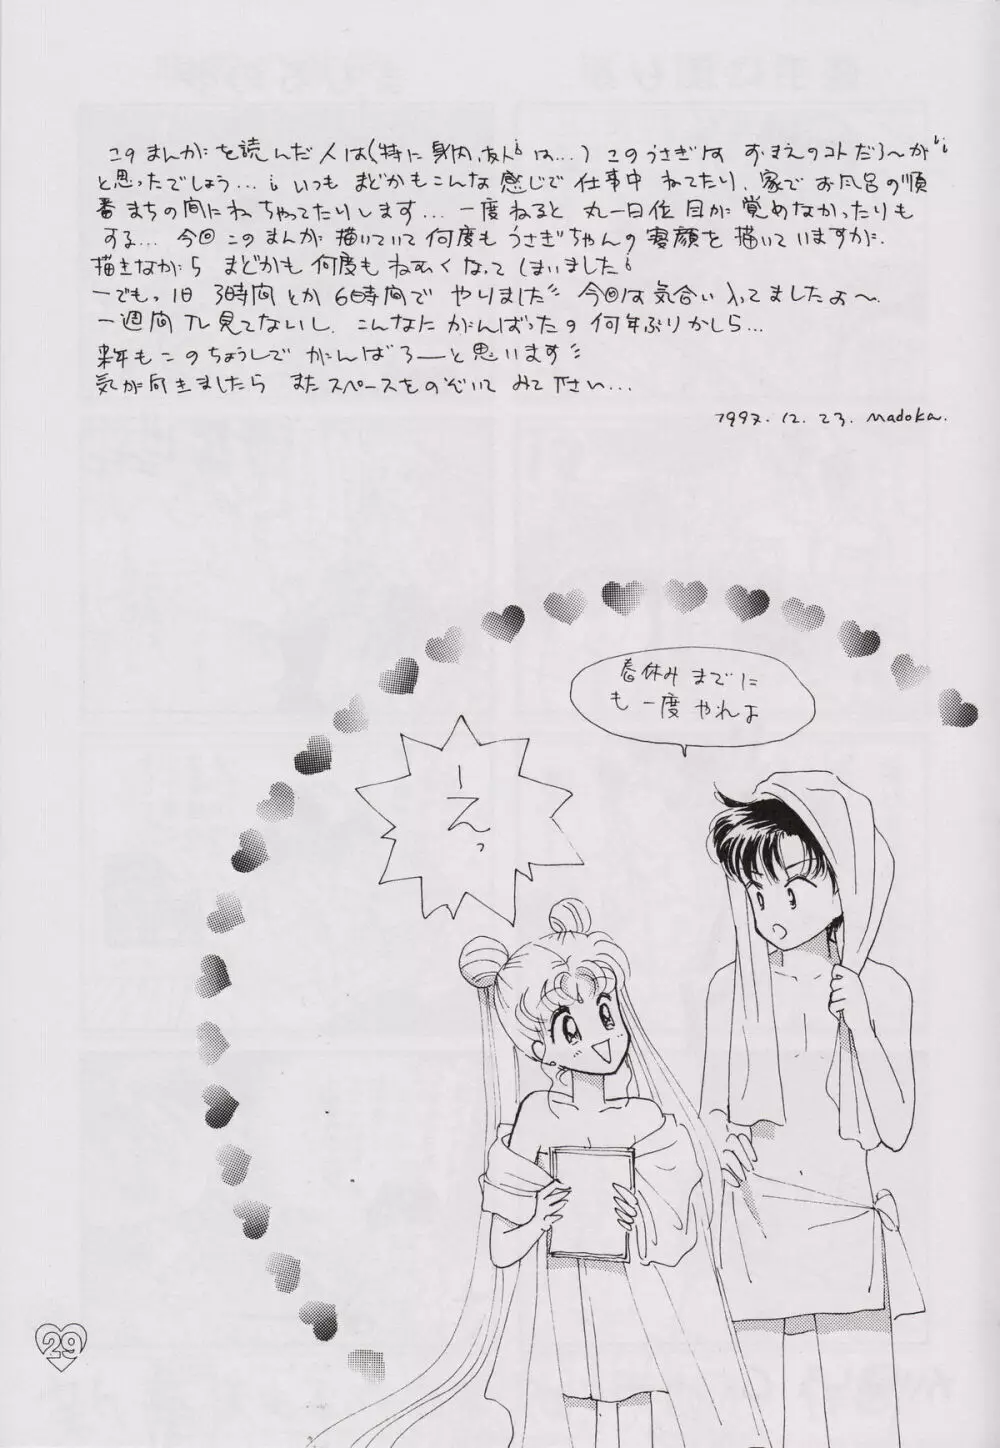 このまんがを読んだ人は(特に身内、友人は…)このうさぎは おまえのコトだろ〜が
と思ったでしょう… いつも まどかもこんな感じで 仕事中 ねてたり、家で お風呂の順
番まちの間にねちゃってたりします… 一度ねると 丸一日位 目が覚めなかったりも
する… 今回このまんが描いていて何度も うさぎちゃんの寝顔を描いていますが、
描きながら まどかも 何度も ねむくなって しまいました
ーでもっ 1日 3時間とか 6時間で やりました 今回は気合い入ってましたよ〜
一週間TV見てないし、こんなに がんばったの 何年ぶりかしら…
来年もこのちょうしで がんばろーと思います
気が向きましたら またスペースをのぞいて みて下さい…
1997. 12. 23. Madoka.
春休みまでに
も一度やれよ
えーっ
29